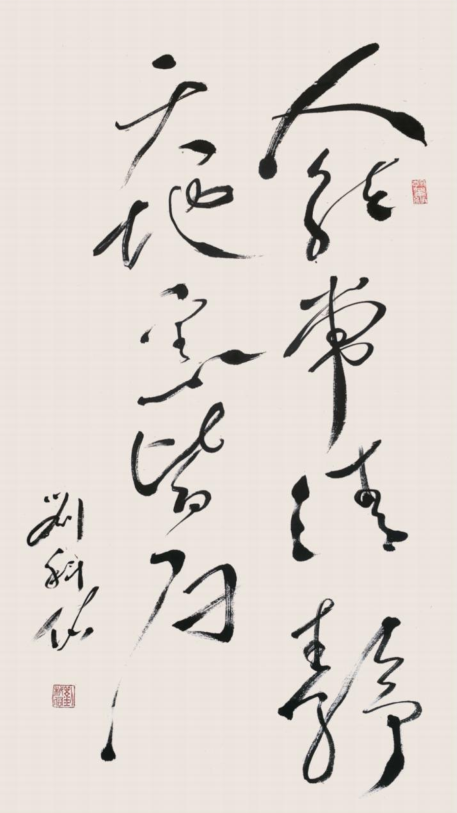 人能常清静
天地悉皆归
刘科佑